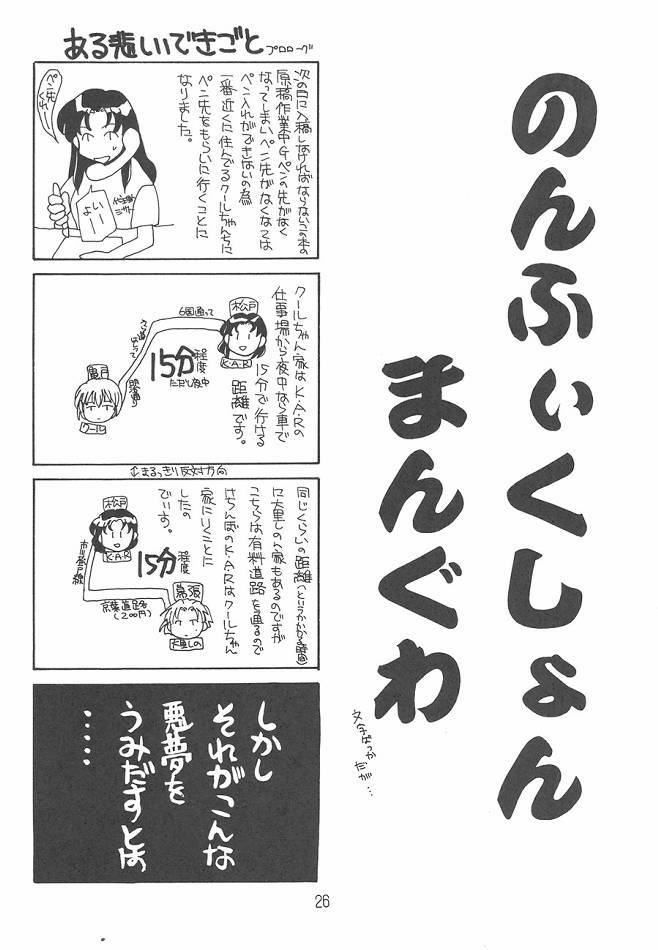 のんふぃくしょん
まんぐわ
文字ばっか
だが…
ある悲しいできごと
プロローグ
ペン先
くれー
次の日に入稿しなければならないこの本の
原稿作業中Gペンの先がなく
なってしまいペン先がなくなては
ペン入れができないの為
一番近くに住んでるクールちゃんちに
ペン先をもらいに行くことに
なりました。
よい
クールちゃん家はK・A・Rの
仕事場から夜中なら車で
15分で行ける
距離です。
松戸
K・A・R
6国通って
15分程度
ただし夜中
クール
↕まるっきり反対方向
同じくらいの距離(というかかかる時間)
に大里しの人家もあるのですが
こちらは有料道路を通るので
けちんぼのK・A・Rはクールちゃん
家にいくことに
したの
でぃす。
松戸
K・A・R
15分程度
京葉道路
(200円)
幕張
大里しの
しかし
それがこんな
悪夢を
うみだすとは
・・・・・
26